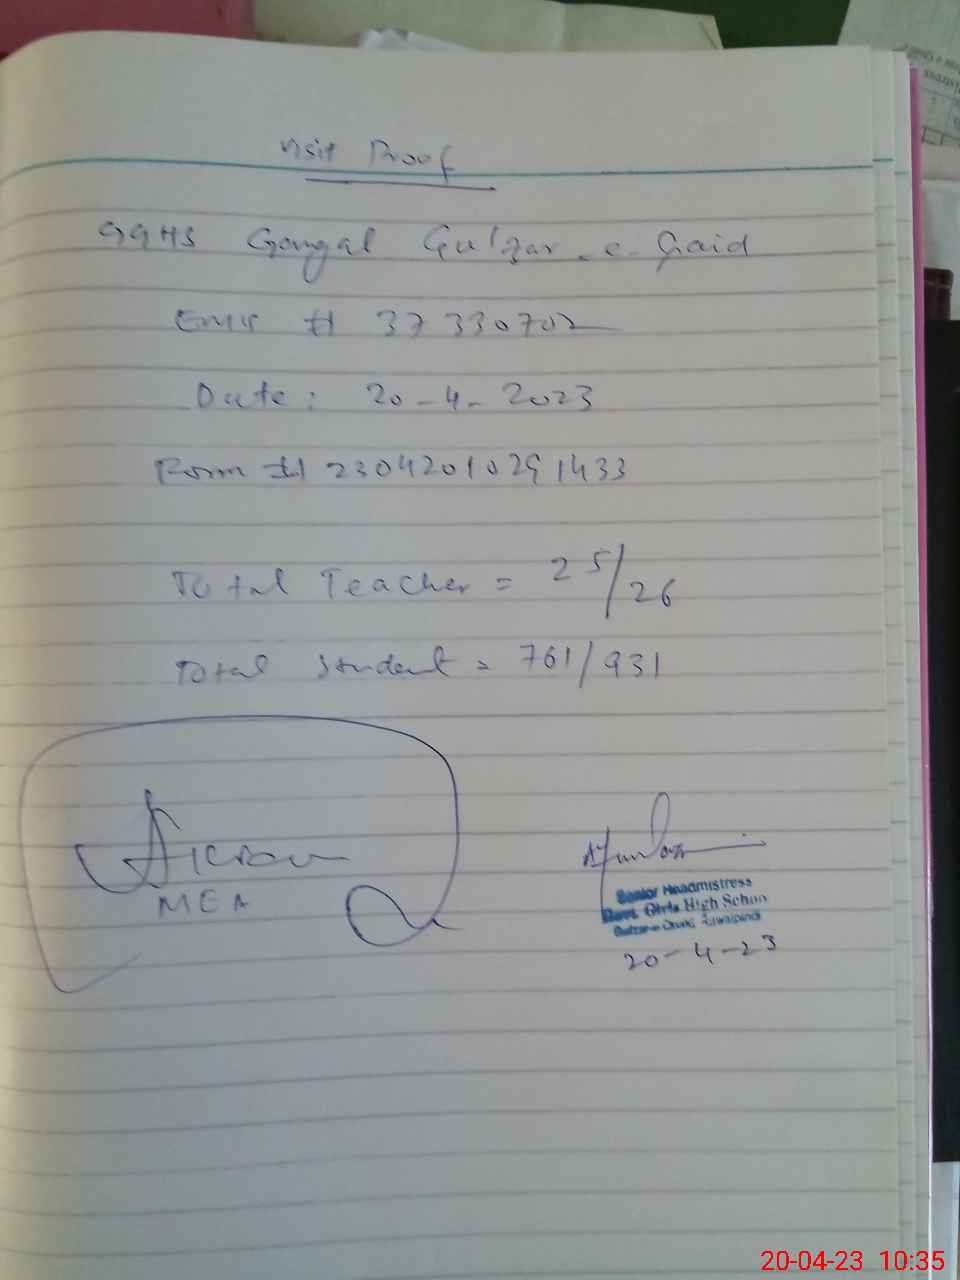 Visit Proof
GGHS Gangal Gulzar-e-Quaid
EMIS # 37330702
Date: 20-4-2023
Form # 23042010291433
Total Teacher = 25/26
Total Student = 761/931
Akram
MEA
Senior Headmistress
Govt. Girls High School
Gulzar-e-Quaid, Rawalpindi
20-4-23
20-04-23 10:35